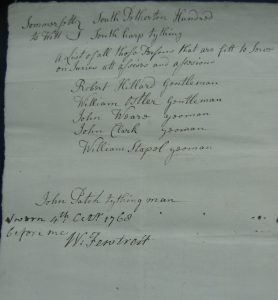 Sommersett South Petherton Hundred
to Witt South harp tything
A List of all those Persons that are fitt to Serve
on Juries att assizes and assessions
Robert Hillard Gentleman
William Ostler Gentleman
John Weare yeoman
John Clark yeoman
William Stapel yeoman
John Patch tything man
Sworn 4th Octr 1768
before me
W: Fewtrell